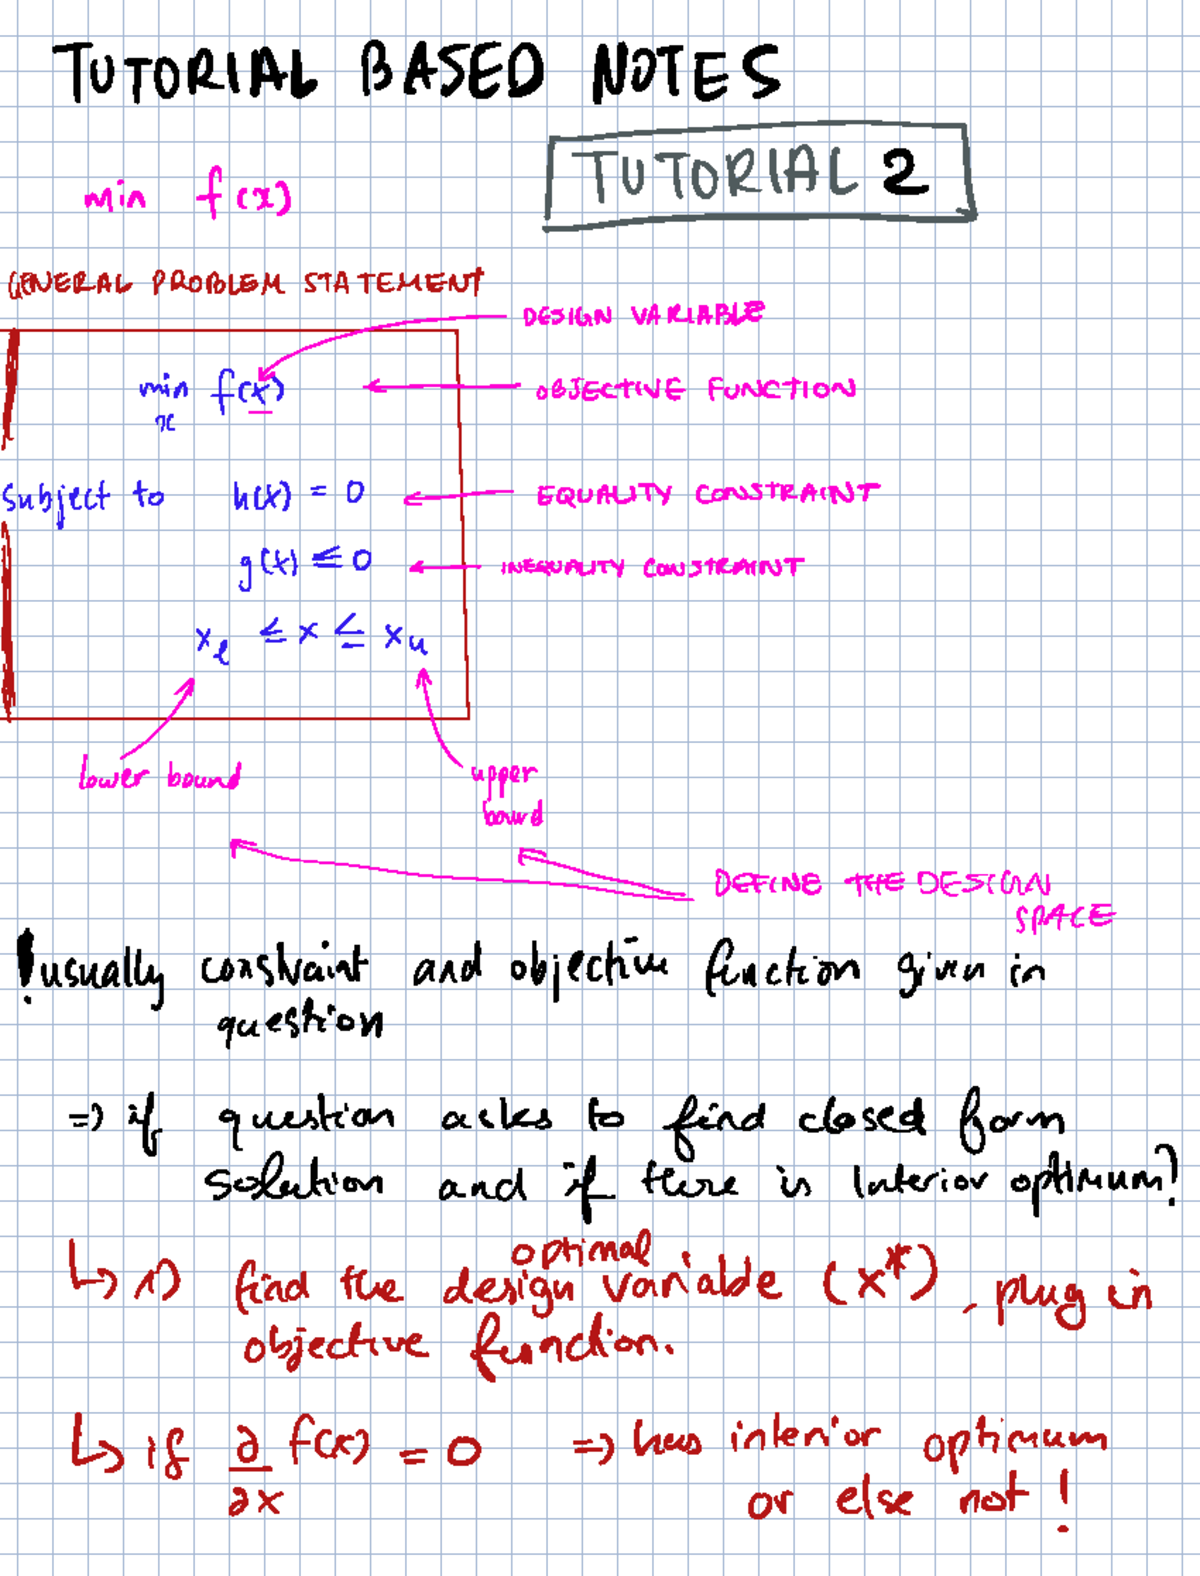 TUTORIAL BASED NOTES
TUTORIAL 2
min f(x)
GENERAL PROBLEM STATEMENT
DESIGN VARIABLE
min f(x)
x
OBJECTIVE FUNCTION
Subject to h(x) = 0
EQUALITY CONSTRAINT
g(x) ≤ 0
INEQUALITY CONSTRAINT
x_l ≤ x ≤ x_u
lower bound
upper
bound
DEFINE THE DESIGN
SPACE
! usually constraint and objective function given in
question
=> if question asks to find closed form
solution and if there is Interior optimum?
↳ 1) find the optimal design variable (x*), plug in
objective function.
↳ if ∂/∂x f(x) = 0 => has interior optimum
or else not !